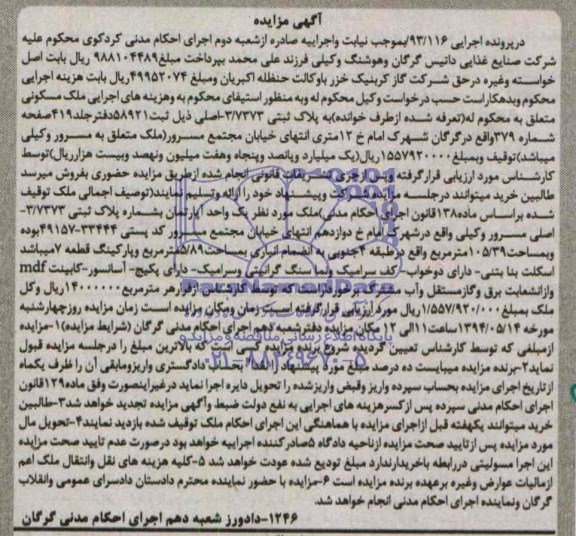 آگهی مزایده
درپرونده اجرایی ۹۳/۱۱۶/بموجب نیابت واجراییه صادره ازشعبه دوم اجرای احکام مدنی کردکوی محکوم علیه
شرکت صنایع غذایی داتیس گرگان وهوشنگ وکیلی فرزند علی محمد بپرداخت مبلغ ۹۸۸۱۰۴۴۸۹ ریال بابت اصل
خواسته وغیره درحق شرکت گاز کربنیک خزر باوکالت حنظله اکبریان ومبلغ ۴۹۹۵۲۰۷۴ ریال بابت هزینه اجرایی
محکوم وبدهکاراست حسب درخواست وکیل محکوم له وبه منظور استیفای محکوم به وهزینه های اجرایی ملک مسکونی
متعلق به محکوم له(تعرفه شده ازطرف خوانده)به پلاک ثبتی ۳/۷۳۷۳-اصلی ذیل ثبت۵۸۹۲۱دفترجلد۴۱۹صفحه
شماره ۳۷۹واقع درگرگان شهرک امام خ ۱۲متری انتهای خیابان مجتمع مسرور(ملک متعلق به مسرور وکیلی
میباشد)توقیف وبمبلغ۱۵۵۷۹۲۰۰۰۰ریال(یک میلیارد وپانصد وپنجاه وهفت میلیون ونهصد وبیست هزارریال)توسط
کارشناس مورد ارزیابی قرارگرفته وپس ازجری تشریفات قانونی انجام شده ازطریق مزایده حضوری بفروش میرسد
طالبین خرید میتوانند درجلسه مزایده شرکت وپیشنهاد خود را ارائه وتسلیم نمایند(توصیف اجمالی ملک توقیف
شده براساس ماده۱۳۸قانون اجرای احکام مدنی)ملک مورد نظر یک واحد آپارتمان بشماره پلاک ثبتی ۳/۷۳۷۳-
اصلی مسرور وکیلی واقع درشهرک امام خ دوازدهم انتهای خیابان مجتمع مسرور کد پستی ۳۳۴۴۴-۴۹۱۵۷بوده
وبمساحت۱۰۵/۳۹مترمربع واقع درطبقه ۴جنوبی به انضمام انباری بمساحت۵/۸۹مترمربع وپارکینگ قطعه ۷میباشد
اسکلت بنا بتنی- دارای دوخواب- کف سرامیک ونما سنگ گرانیتی وسرامیک- دارای پکیج- آسانسور-کابینت mdf
وازانشعابت برق وگازمستقل وآب مشترک برخورداراست که توسط کارشناس ازقرارهر مترمربع۱۴۰۰۰۰۰۰ریال وکل
ملک بمبلغ۱/۵۵۷/۹۲۰/۰۰۰ریال موردارزیابی قرارگرفته است زمان ومکان برگزاری مزایده است زمان مزایده روزچهارشنبه
مورخه ۱۳۹۴/۰۵/۱۴ساعت۱۱الی ۱۲ مکان مزایده دفترشعبه دهم اجرای احکام مدنی گرگان (شرایط مزایده)۱-مزایده
ازمبلغی که توسط کارشناس تعیین گردیده شروع برنده مزایده کسی است که بالاترین مبلغ را درجلسه مزایده قبول
نماید۲-برنده مزایده میبایست ده درصد مبلغ مورد پیشنهاد را نقدا بحساب دادگستری واریزومابقی آن را ظرف یکماه
ازتاریخ اجرای مزایده بحساب سپرده واریز وقبض واریزشده را تحویل دایره اجرا نماید درغیراینصورت وفق ماده۱۲۹قانون
اجرای احکام مدنی سپرده پس ازکسرهزینه های اجرایی به نفع دولت ضبط وآگهی مزایده تجدید خواهد شد۳-طالبین
خرید میتوانند یکهفته قبل ازاجرای مزایده با هماهنگی این اجرای احکام ملک توقیف شده بازدید نمایند۴-تحویل مال
مورد مزایده پس ازتایید صحت مزایده ازناحیه دادگاه ۵صادرکننده اجراییه خواهد بود درصورت عدم تایید صحت مزایده
این اجرا مسولیتی دررابطه باخریدارندارد مبلغ تودیع شده عودت خواهد شد ۵-کلیه هزینه های نقل وانتقال ملک اهم
ازمالیات عوارض وغیره برعهده برنده مزایده است ۶-مزایده با حضور نماینده محترم دادستان دادسرای عمومی وانقلاب
گرگان ونماینده اجرای احکام مدنی انجام خواهد شد.
۱۲۴۶-دادورز شعبه دهم اجرای احکام مدنی گرگان
پایگاه اطلاع رسانی مناقصه و مزایده
۰۲۱-۸۸۳۴۹۶۷۰-۵